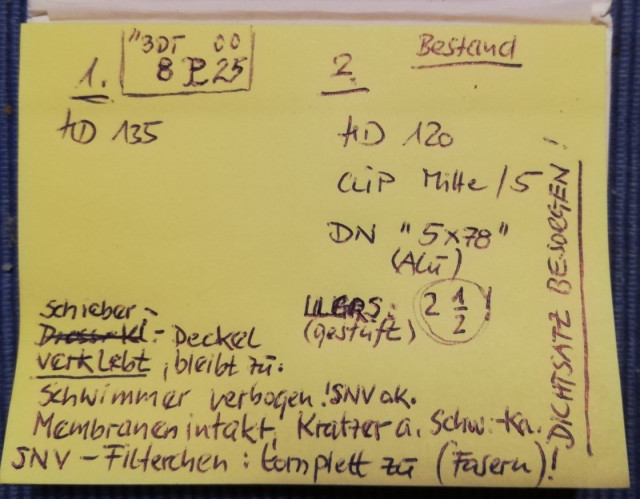 "3DT 00
8 P 25
Bestand
1.
2.
HD 135
HD 120
CLiP Mitte / 5
DN "5x78"
(Alu)
LLGRS: 2 1/2 !
(gestuft)
DICHTSATZ BESORGEN!
Schieber-
Drossekl.- Deckel
verklebt, bleibt zu.
Schwimmer verbogen! SNV ok.
Membranen intakt, Kratzer a. Schwi-Ka.
SNV - Filterchen: komplett zu (Fasern)!